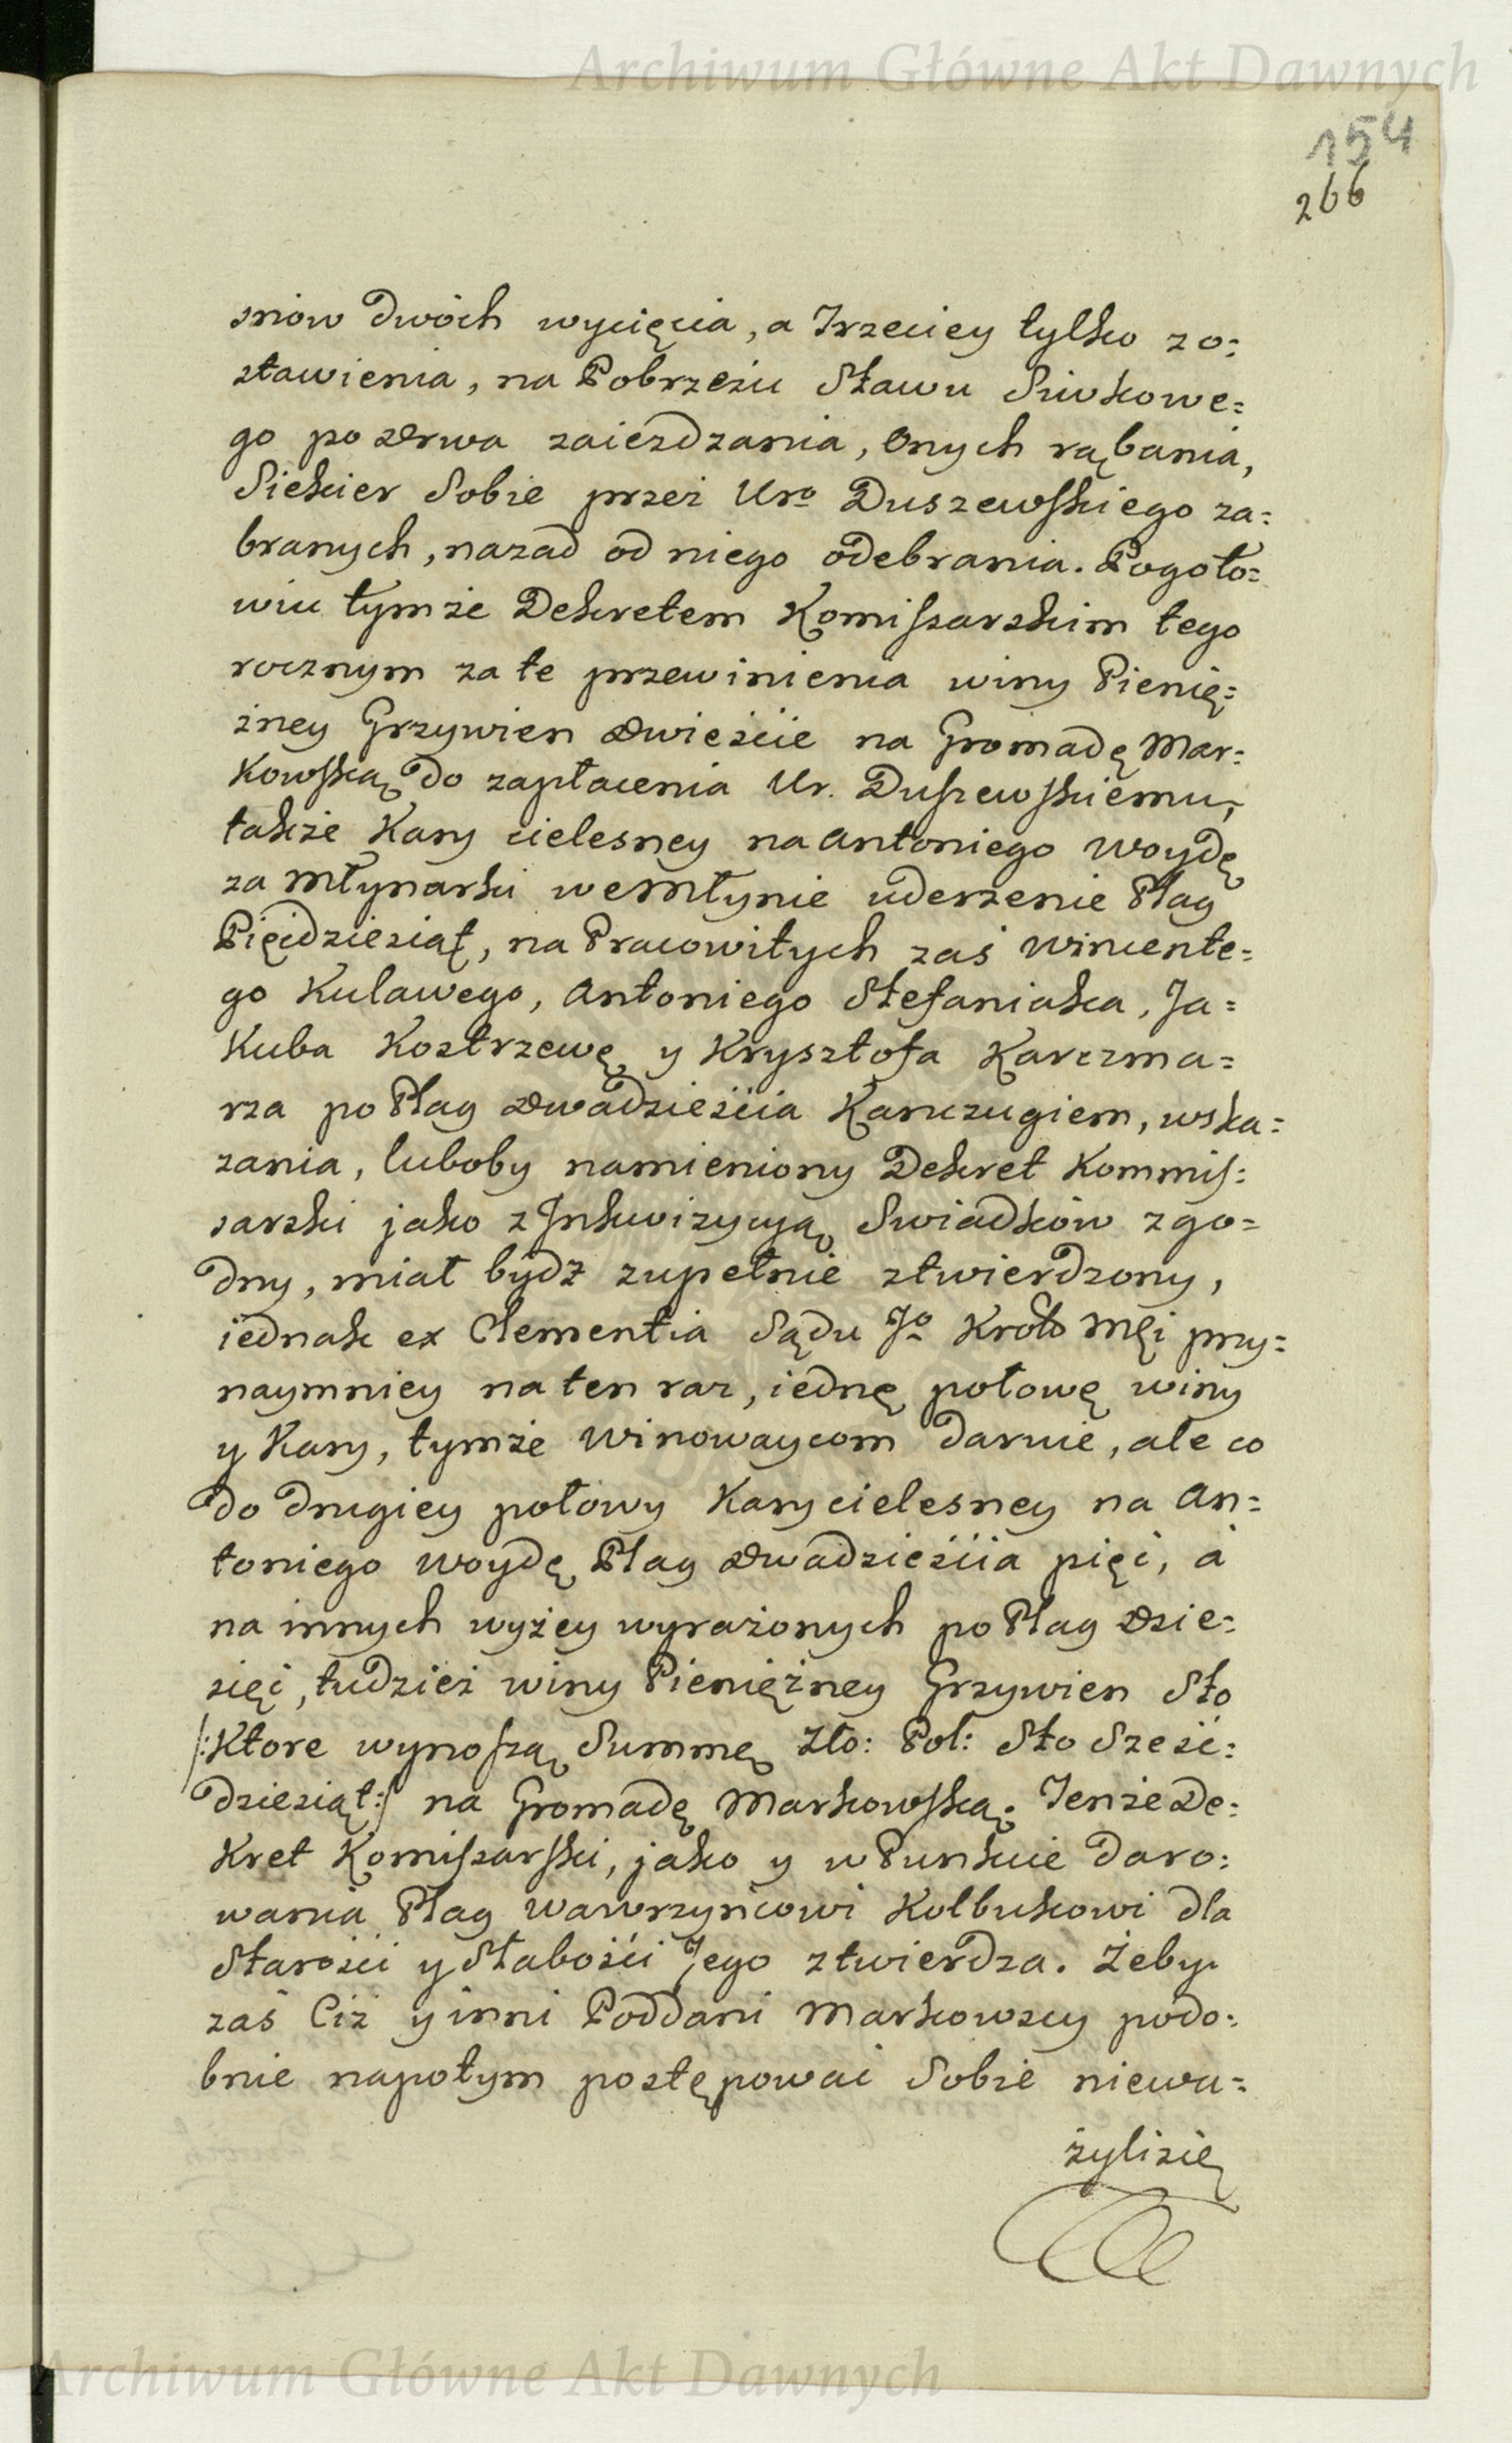 Archiwum Główne Akt Dawnych
154
266
snow dwóch wycięcia, a Trzeciey tylko zo:
stawienia, na Pobrzeżu Stawu Siwkowe=
go po drwa zaieżdzania, Onych rąbania,
Siekier Sobie przez Uro Duszewskiego za=
branych, nazad od niego odebrania. Pogoto=
wiu tymże Dekretem Komissarskim tego
rocznym za te przewinienia winy Pienię=
żney Grzywien dwieście na Gromadę Mar=
kowską do zapłacenia Ur. Duszewskiemu,
także Kary cielesney na Antoniego Woydę
za Młynarki we Młynie uderzenie Plag
Pięćdziesiąt, na Pracowitych zaś Wincente=
go Kulawego, Antoniego Stefaniaka, Ja=
kuba Kostrzewę y Krysztofa Karczma=
rza po Plag dwadzieścia Kanczugiem, wska=
zania, luboby namieniony Dekret Kommis=
sarski jako z Inkwizycyą Swiadków zgo=
dny, miał bydź zupełnie ztwierdzony,
iednak ex Clementia Sądu Jo Król Mći przy=
naymniey na ten raz, iednę połowę winy
y Kary, tymże Winowaycom daruie, ale co
do drugiey połowy Kary cielesney na An=
toniego Woydę Plag dwadzieścia pięć, a
na innych wyżey wyrażonych po Plag dzie=
sięć, tudzież winy Pieniężney Grzywien Sto
/:Które wynoszą Summę Zło: Pol: Sto Sześć=
dziesiąt:/ na Gromadę Markowską. Tenże De=
kret Komissarski, jako y w Punkcie daro=
wania Plag Wawrzyńcowi Kołbukowi dla
Starości y Słabości Jego ztwierdza. Żeby
zaś Ciż y inni Poddani Markowscy podo=
bnie napotym postępować Sobie niewa=
żyli się
Archiwum Główne Akt Dawnych